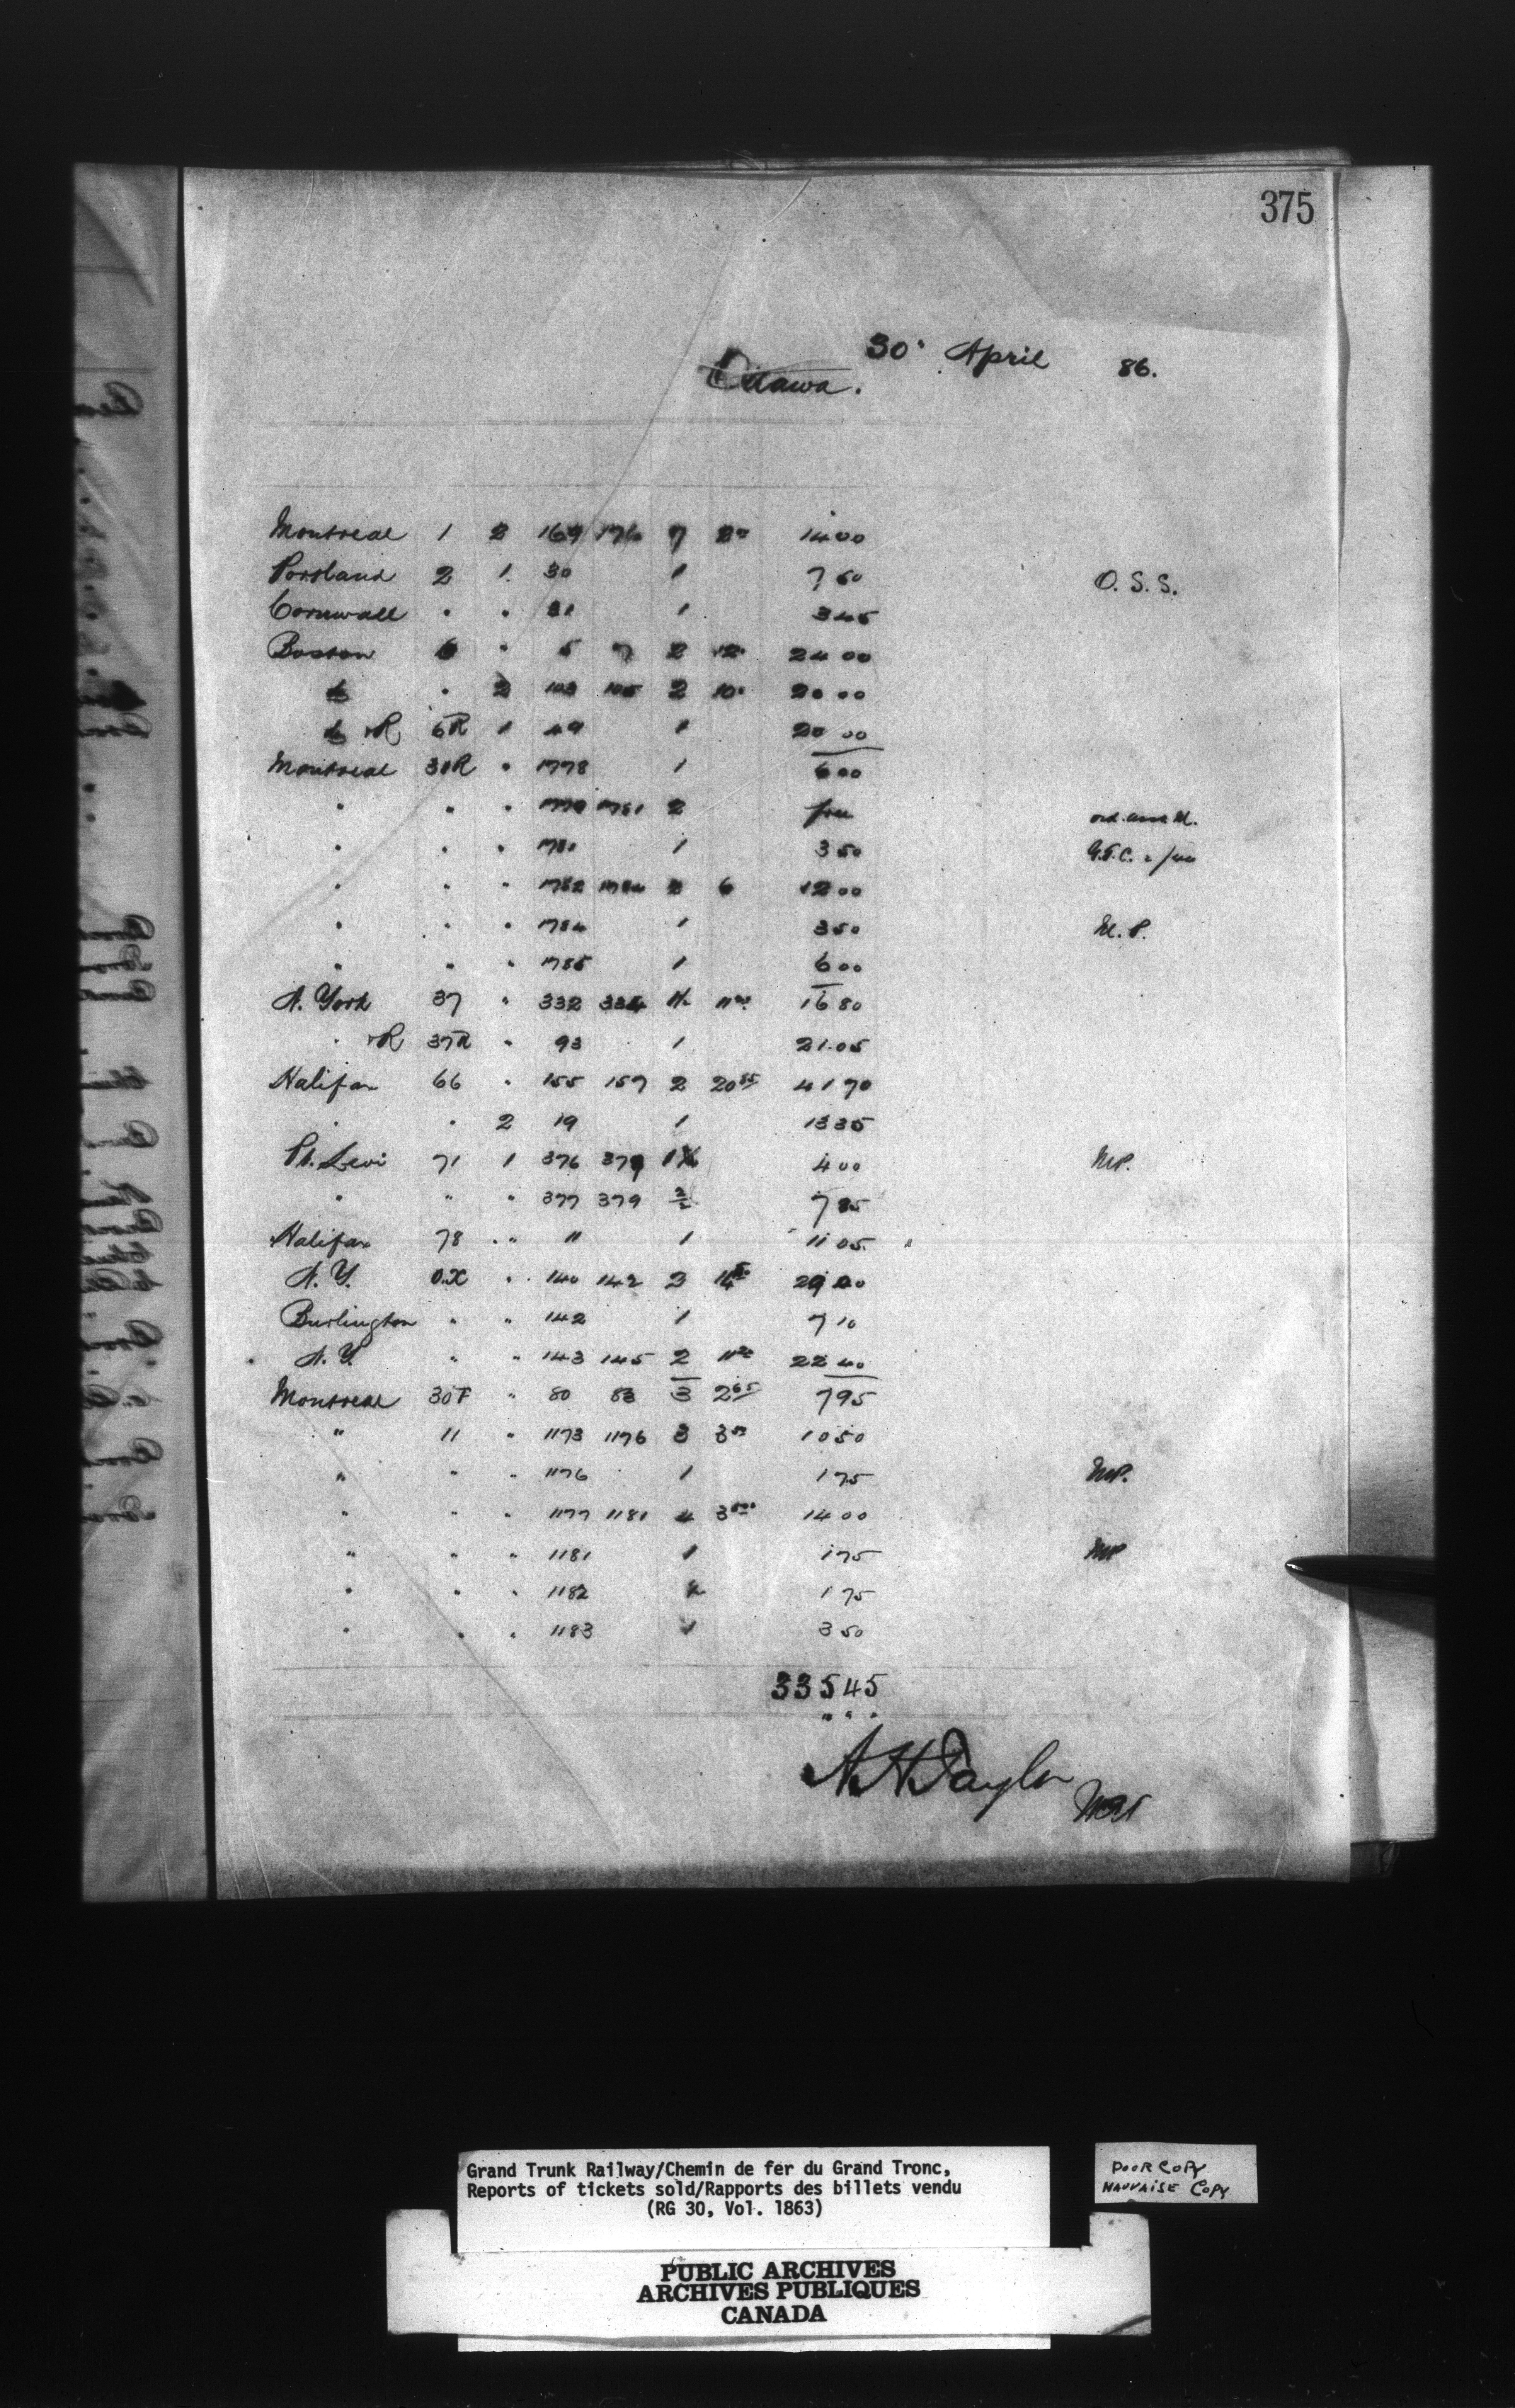 375
30 April 86.
Ottawa.
Montreal 1 2 169 176 7 2 00 14 00
Portland 2 1 30 1 7 50 O. S. S.
Cornwall " " 31 1 3 45
Boston 6 " 5 7 2 12 24 00
do " 2 103 105 2 10 20 00
do R 6R 1 49 1 20 00
Montreal 30R " 1778 1 6 00
" " " 1779 1781 2 free
" " " 1781 1 3 50
" " " 1782 1784 2 6 12 00
" " " 1784 1 3 50 M. P.
" " " 1785 1 6 00
N. York 37 " 332 334 16 80
" R 37R " 93 1 21.05
Halifax 66 " 155 157 2 20 85 41 70
" " 2 19 1 13 35
Pt. Levi 71 1 376 379 4 00 MP.
" " " 377 379 2 7 85
Halifax 78 " " 11 1 11 05
N. Y. O.X " 140 142 2
Burlington " " 142 1 7 10
N. Y. " " 143 145 2 11 20 22 40
Montreal 30F " 80 83 3 2 65 7 95
" 11 " 1173 1176 3 3 50 10 50
" " " 1176 1 1 75 MP.
" " " 1177 1181 4 3 50 14 00
" " " 1181 1 1 75 MP
" " " 1182 1 75
" " " 1183 1 3 50
335 45
A H Taylor
Grand Trunk Railway/Chemin de fer du Grand Tronc,
Reports of tickets sold/Rapports des billets vendu
(RG 30, Vol. 1863)
POOR COPY
MAUVAISE COPY
PUBLIC ARCHIVES
ARCHIVES PUBLIQUES
CANADA